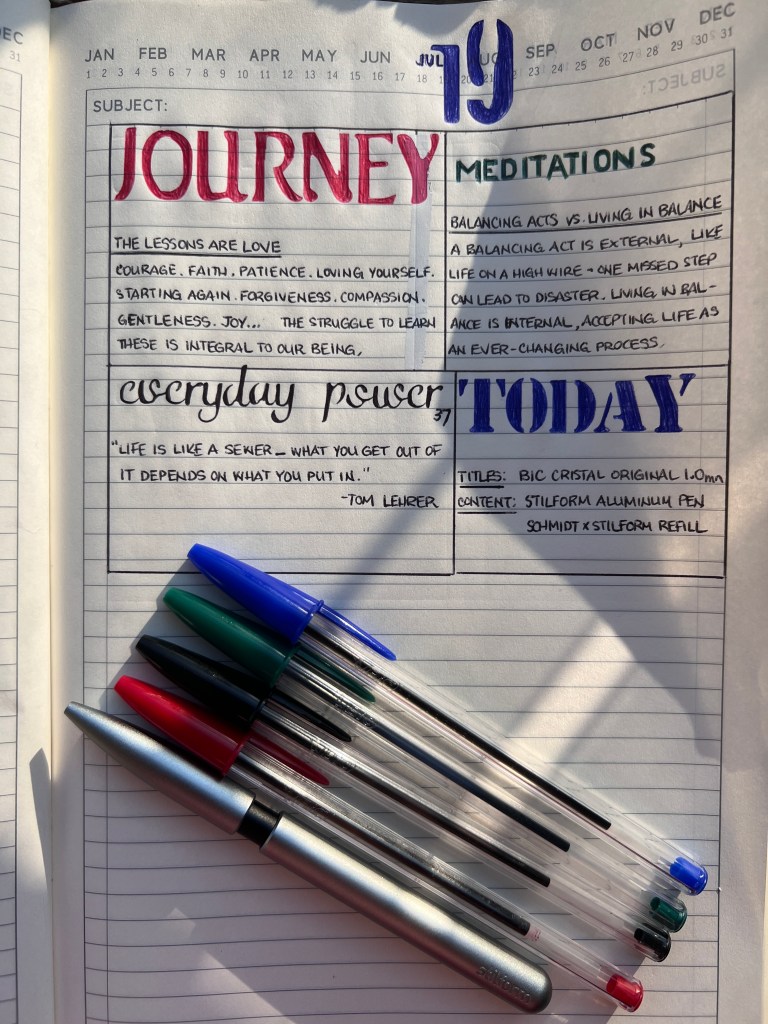 DEC
31
JAN FEB MAR APR MAY JUN JUL AUG SEP OCT NOV DEC
1 2 3 4 5 6 7 8 9 10 11 12 13 14 15 16 17 18 19 20 21 23 24 25 26 27 28 29 30 31
19
SUBJECT:
JOURNEY
THE LESSONS ARE LOVE
COURAGE. FAITH. PATIENCE. LOVING YOURSELF.
STARTING AGAIN. FORGIVENESS. COMPASSION.
GENTLENESS. JOY... THE STRUGGLE TO LEARN
THESE IS INTEGRAL TO OUR BEING.
MEDITATIONS
BALANCING ACTS VS. LIVING IN BALANCE
A BALANCING ACT IS EXTERNAL, LIKE
LIFE ON A HIGH WIRE - ONE MISSED STEP
CAN LEAD TO DISASTER. LIVING IN BAL-
ANCE IS INTERNAL, ACCEPTING LIFE AS
AN EVER-CHANGING PROCESS.
everyday power 37
"LIFE IS LIKE A SEWER – WHAT YOU GET OUT OF
IT DEPENDS ON WHAT YOU PUT IN."
-TOM LEHRER
TODAY
TITLES: BIC CRISTAL ORIGINAL 1.0mm
CONTENT: STILFORM ALUMINUM PEN
SCHMIDT x STILFORM REFILL
stilform